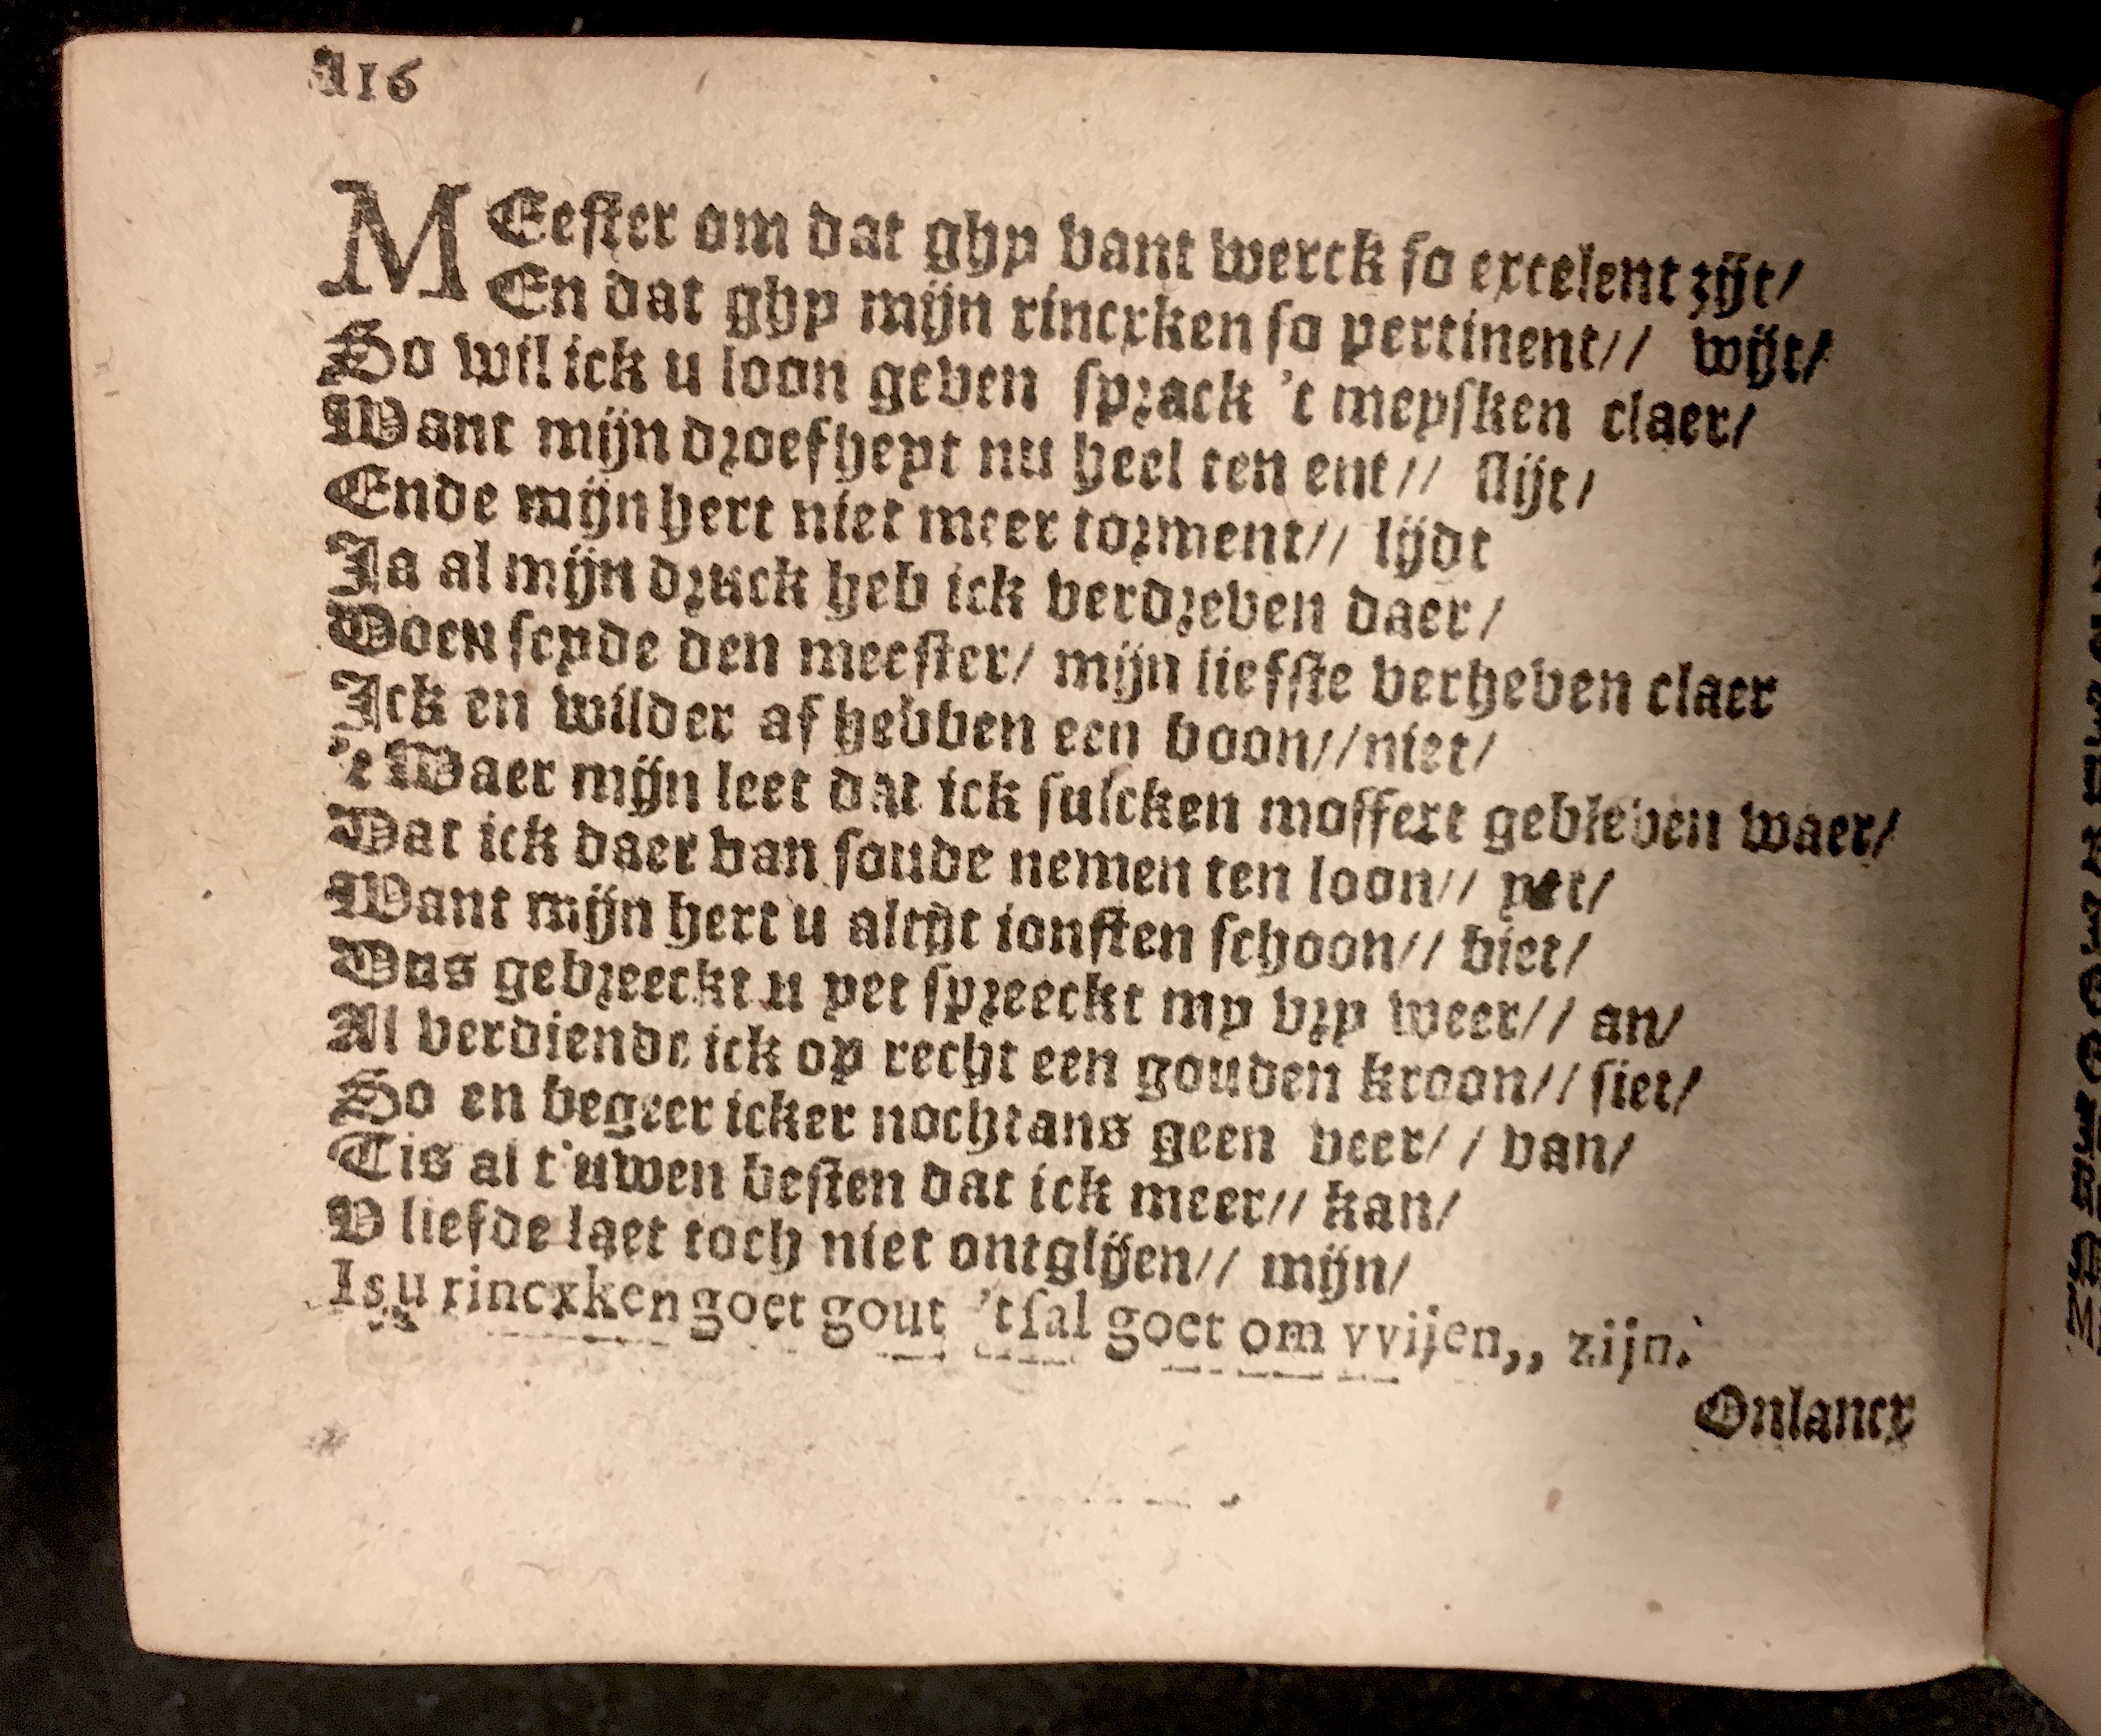 116
MEester om dat ghy vant werck so excelent zijt/
En dat ghy mijn rincxken so pertinent// wijt/
So wil ick u loon geven sprack 't meysken claer/
Want mijn droefheyt nu heel ten ent// slijt/
Ende mijn hert niet meer torment// lijdt
Ja al mijn druck heb ick verdreven daer/
Doen seyde den meester/ mijn liefste verheven claer
Ick en wilder af hebben een boon//niet/
't Waer mijn leet dat ick sulcken moffert gebleven waer/
Dat ick daer van soude nemen ten loon// yet/
Want mijn hert u altijt jonsten schoon// biet/
Dus gebreeckt u yet spreeckt my vry weer// an/
Al verdiende ick op recht een gouden kroon// siet/
So en begeer icker nochtans geen veer// van/
Tis al t'uwen besten dat ick meer// kan/
V liefde laet toch niet ontglijen// mijn/
Is u rincxken goet gout 'tsal goet om vvijen,, zijn.
Onlancx